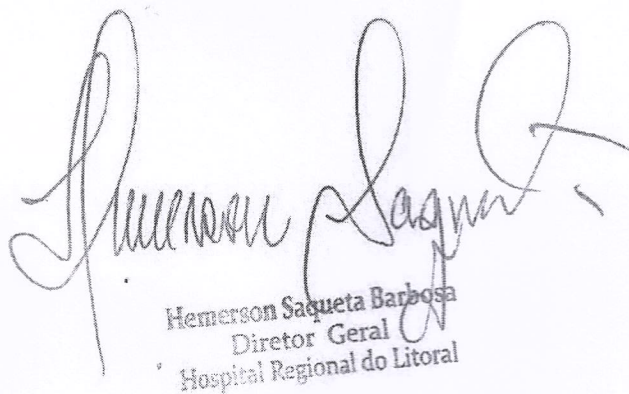 Hemerson Saqueta B.
Hemerson Saqueta Barbosa
Diretor Geral
Hospital Regional do Litoral